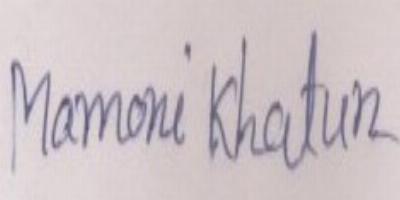 Mamoni Khatun